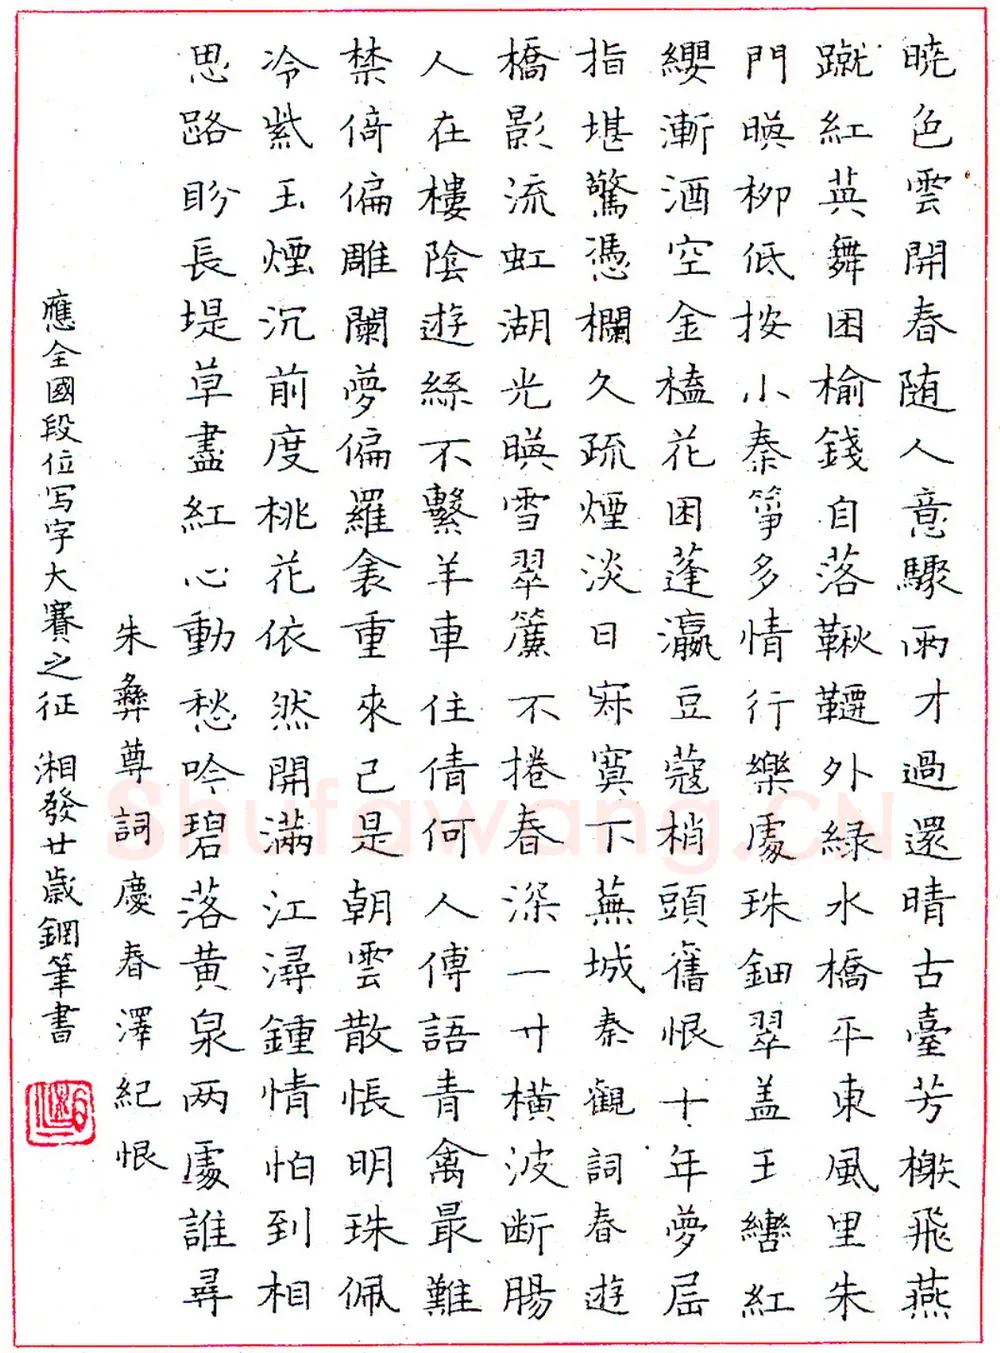 晓色雲開春随人意驟雨才過還晴古臺芳榭飛燕
蹴紅英舞困榆錢自落鞦韆外緑水橋平東風里朱
門暎柳低按小秦筝多情行樂處珠鈿翠盖玉轡紅
纓漸酒空金榼花困蓬瀛豆蔻梢頭舊恨十年夢屈
指堪驚憑欄久疏煙淡日寂寞下蕪城秦觀詞春遊
橋影流虹湖光暎雪翠簾不捲春深一寸橫波断腸
人在樓陰遊絲不繫羊車住倩何人傳語青禽最難
禁倚偏雕闌夢偏羅衾重來已是朝雲散悵明珠佩
冷紫玉煙沉前度桃花依然開满江潯鍾情怕到相
思路盼長堤草盡紅心動愁吟碧落黄泉两處誰尋
朱彝尊詞慶春澤紀恨
應全國段位写字大賽之征 湘發廿歲鋼筆書
Shufawang.CN